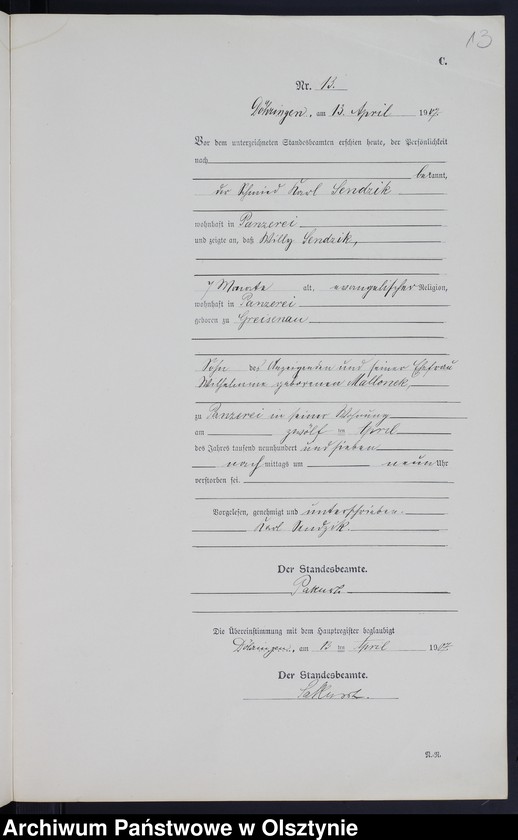 13
C.
Nr. 13.
Döhringen, am 13. April 1907.
Vor dem unterzeichneten Standesbeamten erschien heute, der Persönlichkeit
nach
bekannt,
der Schmied Karl Sendzik
wohnhaft in Panzerei
und zeigte an, daß Willy Sendzik,
7 Monate alt, evangelischer Religion,
wohnhaft in Panzerei
geboren zu Greisenau
Sohn des Anzeigenden und seiner Ehefrau
Wilhelmine geborenen Mallonek,
zu Panzerei in seiner Wohnung
am zwölf ten April
des Jahres tausend neunhundert und sieben
nach mittags um neun Uhr
verstorben sei.
Vorgelesen, genehmigt und unterschrieben.
Karl Sendzik.
Der Standesbeamte.
Die Übereinstimmung mit dem Hauptregister beglaubigt
Döhringen, am 13 ten April 1907.
Der Standesbeamte.
N.-R.
Archiwum Państwowe w Olsztynie